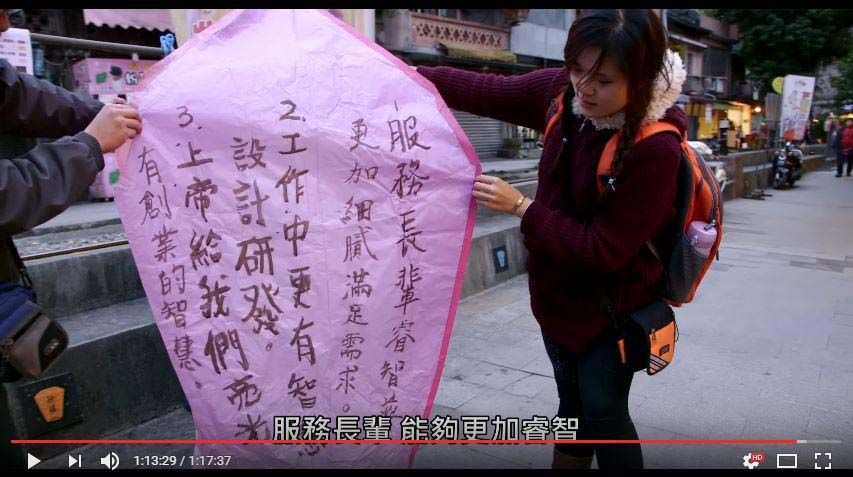 服務長輩睿智
更加細膩滿足需求。
2.工作中更有智
設計研發。
3.上帝給我們亮
有創業的智慧。
服務長輩 能夠更加睿智
1:13:29 / 1:17:37
HD